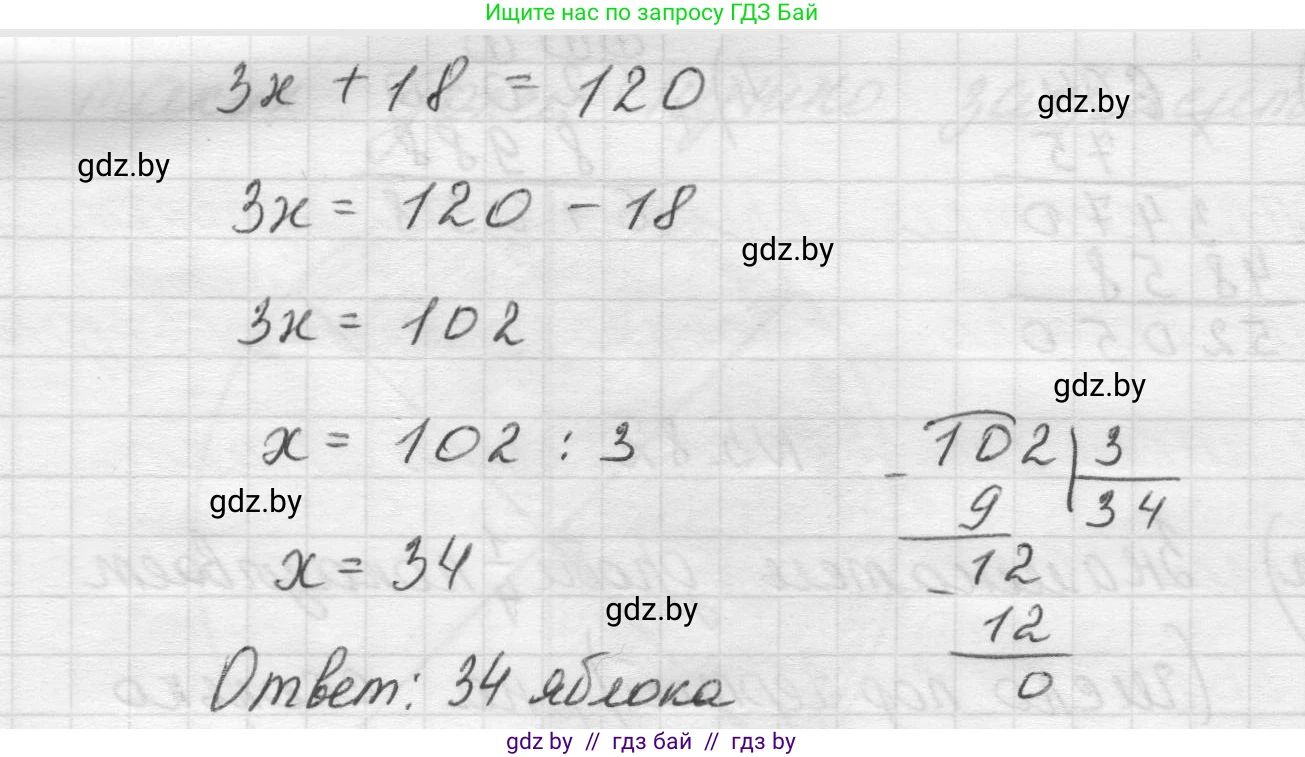 Ищите нас по запросу ГДЗ Бай
3x + 18 = 120
gdz.by
gdz.by
3x = 120 - 18
gdz.by
3x = 102
gdz.by
x = 102 : 3
102 | 3
- 9 | 34
gdz.by
12
- 12
0
x = 34
gdz.by
Ответ: 34 яблока
gdz by // гдз бай // гдз by